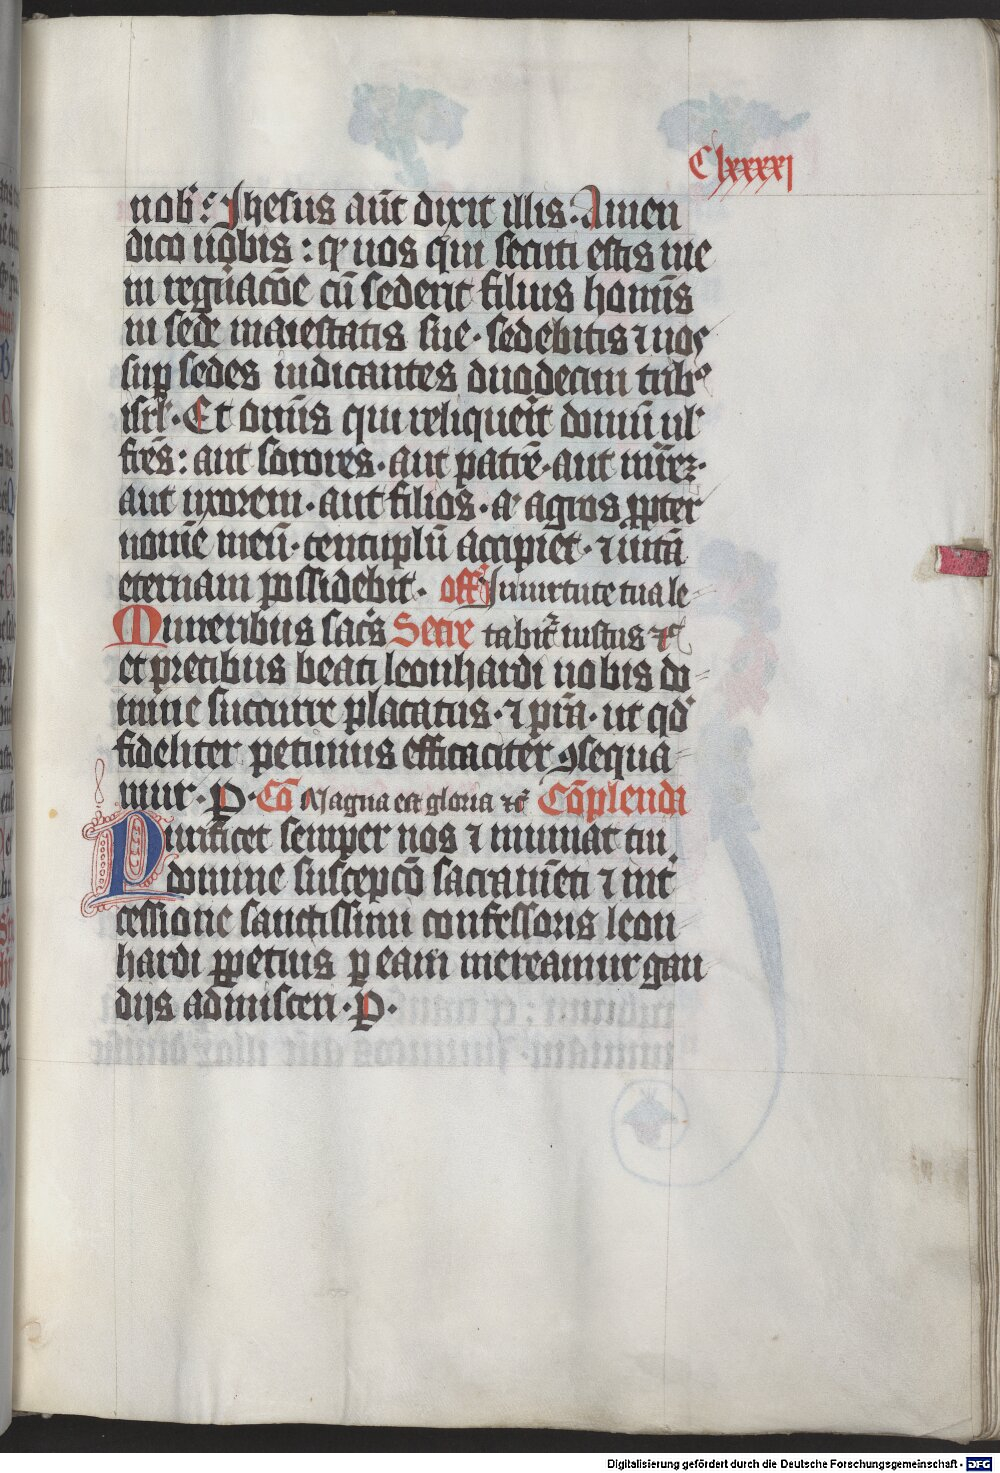 Clxxxxi
nobˢ : Jhesus aūt dixit illis. Amen
dico uobis : ꝙ uos qui secuti estis me
in regn̄acōe cū sederit filius homīs
in sede maiestatis sue · sedebitis ⁊ uos
suꝑ sedes iudicantes duodecim tribꝰ
isrl̄ · Et om̄is qui reliquerīt domū ul'
frēs : aut sorores · aut patrē · aut mrēz ·
aut uxorem · aut filios · aꝰ agros ꝓpter
nomē meū · centuplū accipiet · ⁊ uitā
eternam possidebit · off̄ In uirtute tua le-
Muneribus sac̄s Secre tabit̄ iustus ⁊c̄
et precibus beati leonhardi nobis do-
mine succurre placatus · ⁊ p̄sta · ut qd'
fideliter petimus efficaciter ꝯsequa-
mur · P · Cō Magna est gloria ⁊c̄ Cōplenda
Purificet semper nos ⁊ muniat tui
domine suscepcō sacramēti ⁊ int'
cessione sanctissimi confessoris leon-
hardi ꝑpetuis ꝑ eam mereamur gau
diis admisceri · P ·
Digitalisierung gefördert durch die Deutsche Forschungsgemeinschaft - DFG